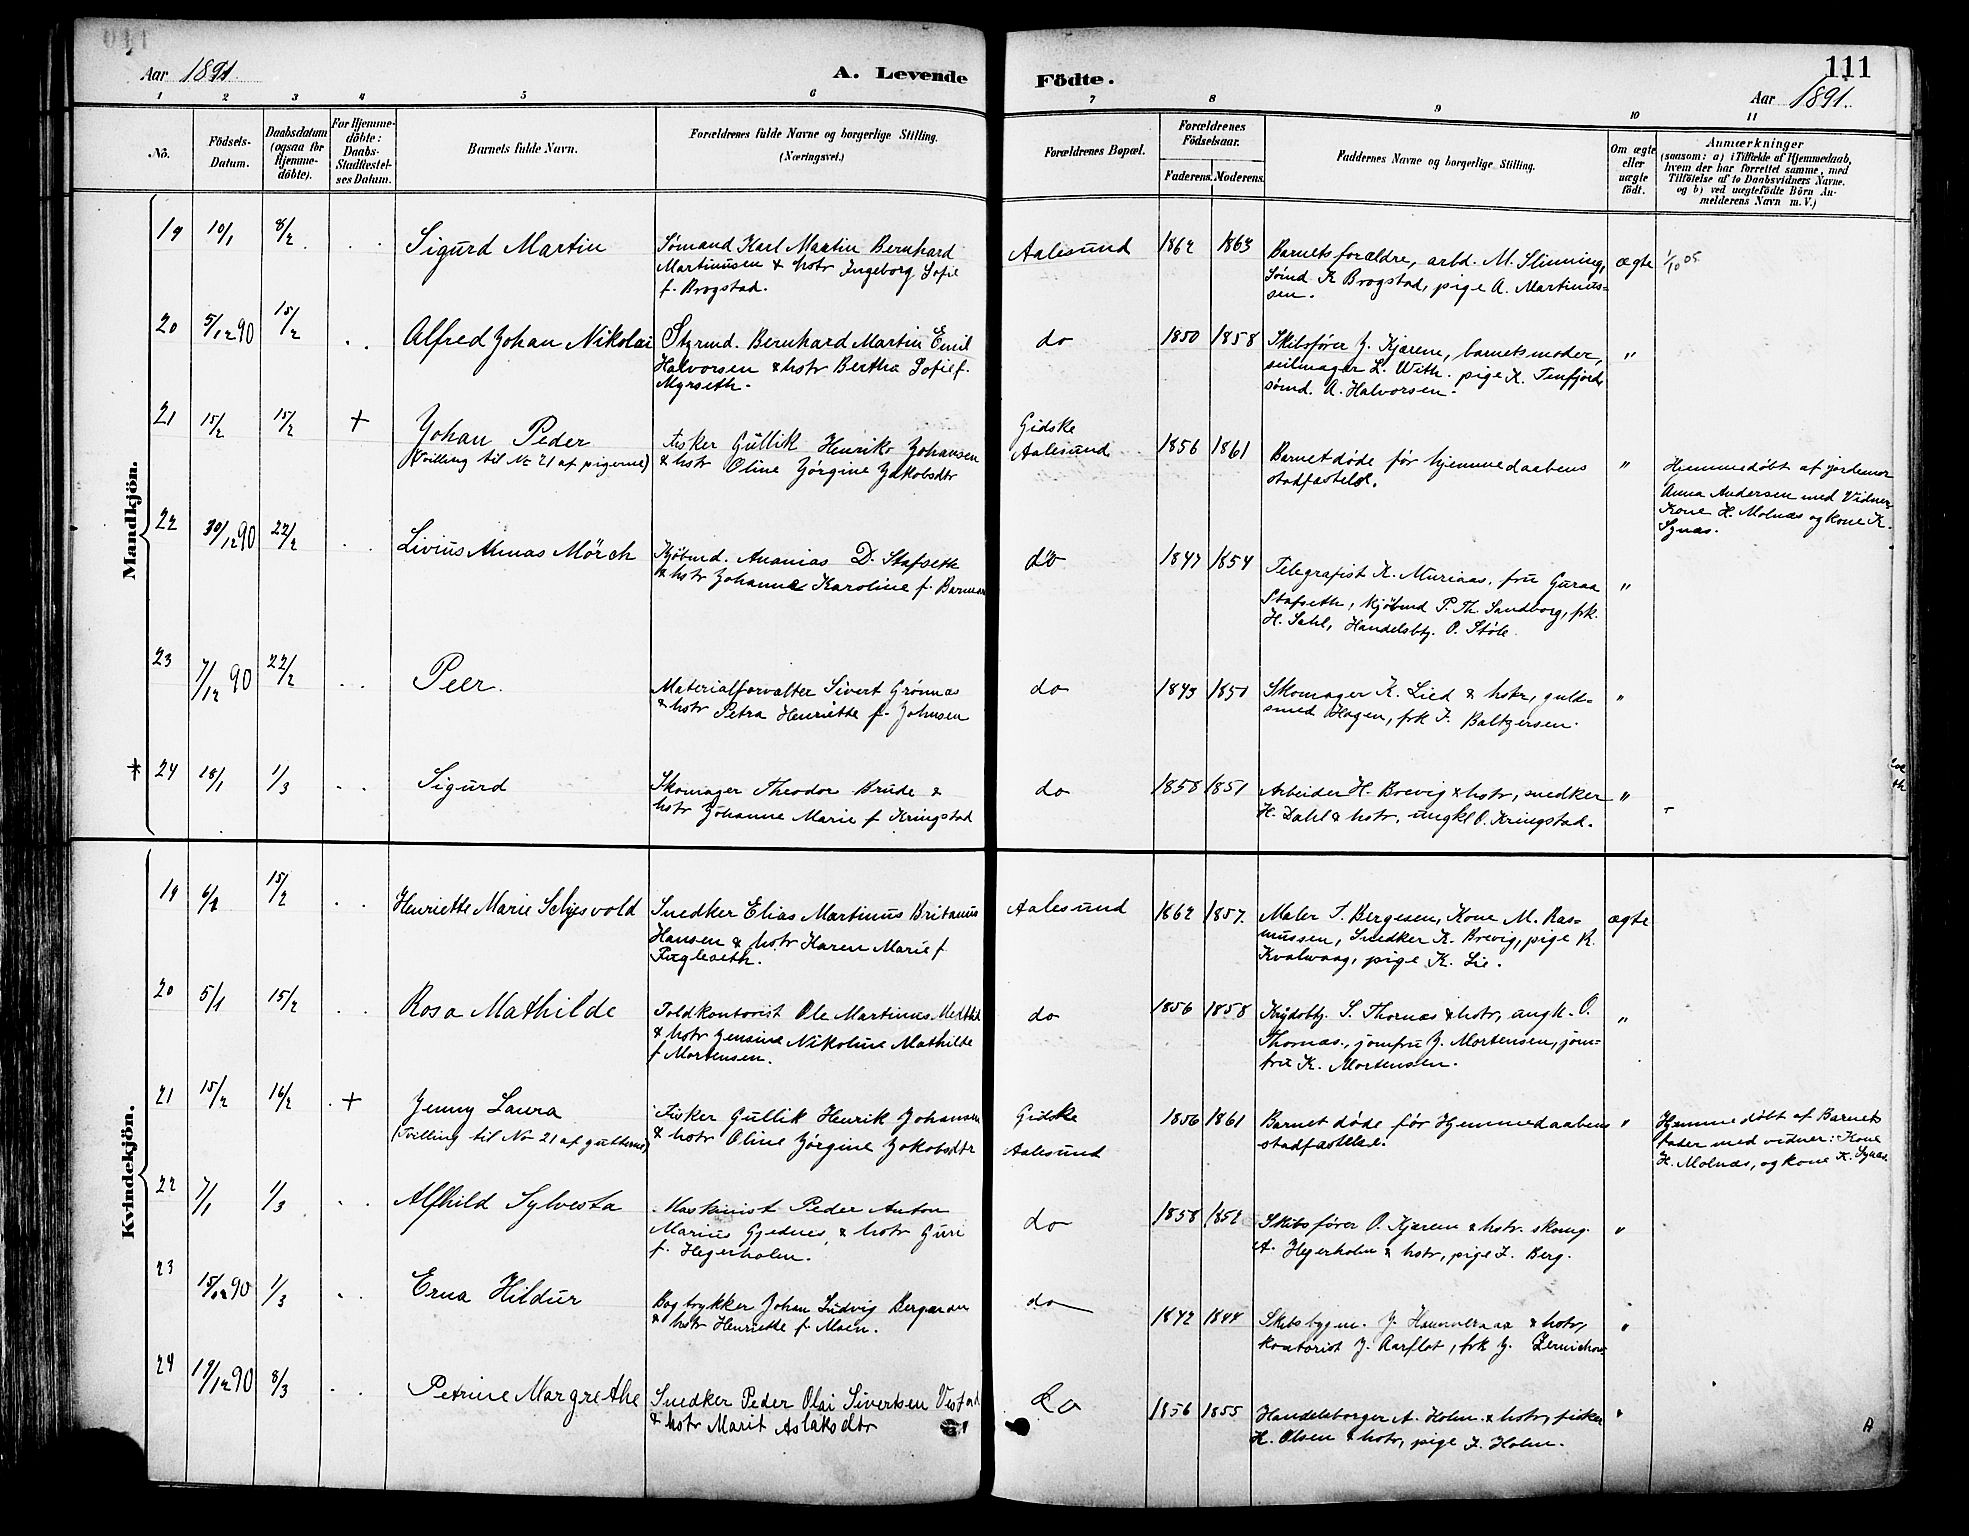 111
Aar 1891.
A. Levende Födte.
Aar 1891.
1 2 3 4 5 6 7 8 9 10 11
No.
Födsels-
Datum.
Daabsdatum
(ogsaa for
Hjemme-
döbte).
For Hjemme-
döbte:
Daabs-
Stadfestel-
ses Datum.
Barnets fulde Navn.
Forældrenes fulde Navne og borgerlige Stilling.
(Næringsvei.)
Forældrenes Bopæl.
Forældrenes
Födselsaar.
Faderens. Moderens.
Faddernes Navne og borgerlige Stilling.
Om ægte
eller
uægte
födt.
Anmærkninger
(saasom: a) i Tilfælde af Hjemmedaab,
hvem der har forrettet samme, med
Tilföielse af to Daabsvidners Navne.
og b) ved uægtefödte Börn An-
melderens Navn m. V.)
Mandkjön.
19 10/1 8/2 Sigurd Martin
Sømand Karl Martin Bernhard
Martinusen & hstr Ingeborg Sofie
f. Brogstad.
Aalesund 1862 1863
Barnets forældre, arbd. M. Slinning,
Sømd. K Brogstad, pige A. Martinus-
sen.
ægte 1/10 05
20 5/12 90 15/2 Alfred Johan Nikolai
Styrmd. Bernhard Martin Emil
Halvorsen & hstr Bertha Sofie f.
Myrseth.
do 1850 1858
Skibsfører J. Kjærem, barnets moder,
seilmager L. With. pige K. Tenfjord,
sømd. A. Halvorsen.
"
21 15/2 15/2 + Johan Peder
(Tvilling til No 21 af pigerne)
Fisker Gullik Henrik Johansen
& hstr Oline Jørgine Jakobsdtr
Gidske
Aalesund 1856 1861
Barnet døde før hjemmedaabens
stadfæstelse.
"
Hjemmedøbt af jordemor
Anna Andersen med Vidner
Kone H. Molnæs og kone K.
Synæs.
22 30/12 90 22/2 Livius Mørch
Kjøbmd. Ananias D. Stafseth
& hstr Johanne Karoline f.
do 1847 1854
Telegrafist K. Muriaas, fru Guraa
Stafseth, kjøbmd P. Th. Sandborg, frk.
H. Sahl, Handelsbtj. O. Støle.
"
23 7/12 90 22/2 Peer.
Materialforvalter Sivert Grønnæs
& hstr Petra Henriette f. Johnsen
do 1843 1851
Skomager K. Lied & hstr, guld-
smed Hagen, frk J. Baltzersen.
"
24 18/1 1/3 Sigurd
Skomager Theodor Brude &
hstr Johanne Marie f Kringstad
do 1858 1851
Arbeider H. Brevig & hstr, snedker
H. Dahl & hstr, ungkl O. Kringstad.
"
Kvindekjön.
19 15/2 Henriette Marie Seljesvold
Snedker Elias Martinus Britanus
Hansen & hstr Karen Marie f
Fugleseth.
Aalesund 1862 1857.
Maler T. Bergesen, Kone M. Ras-
mussen, Snedker K. Brevig, pige R.
Kvalvaag, pige K. Lie.
ægte
20 5/1 15/2 Rosa Mathilde
Toldkontorist Ole Martinus
& hstr Jensine Nikoline Mathilde
f Mortensen.
do 1856 1858
S. Thornæs & hstr, ungk. O.
Thornæs, jomfru J. Mortensen, jom-
fru K. Mortensen.
"
21 15/2 16/2 + Jenny Laura
(Tvilling til No 21 af gutterne)
Fisker Gullik Henrik Johansen
& hstr Oline Jørgine Jakobsdtr
Gidske
Aalesund 1856 1861
Barnet døde før Hjemmedaabens
stadfæstelse.
"
Hjemmedøbt af Barnets
fader med vidner: Kone
H. Molnæs, og kone K. Synæs.
22 7/1 1/3 Alfhild Sylvesta
Maskinist Peder Anton
Marius Gjednes & hstr Guri
f. Hegerholm.
do 1858 1852
Skibsfører O. Kjærem & hstr. skomg.
A. Hegerholm & hstr, pige J. Berg.
"
23 15/12 90 1/3 Erna Hildur
Bogtrykker Johan Ludvig
& hstr Henriette f. Moen.
do 1842 1844
Skibsbygm. J. & hstr,
kontorist J. Aarflot, frk J.
"
24 19/12 90 8/3 Petrine Margrethe
Snedker Peder Olai Sivertsen
& hstr Marit Aslaksdtr
do 1856 1855
Handelsborger A. Holm & hstr, fisker
H. Olsen & hstr, pige J. Holm.
"